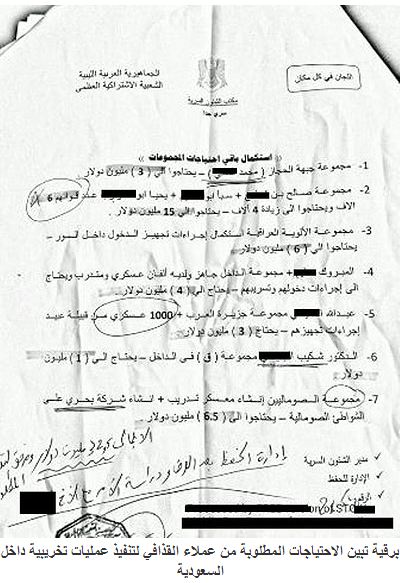 الجماهيرية العربية الليبية
الشعبية الاشتراكية العظمى
مكتب الشئون السرية
سري جدا
اللجان في كل مكان
« استكمال باقي احتياجات المجموعات »
1- مجموعة جبهة المجاز ( محمد ) – يحتاجوا الى ( 3 ) مليون دولار .
2- مجموعة صالح بن + سبأ أبو + يحيا أبو عدد قواتهم 6
الاف ويحتاجوا الى زيادة 4 ألاف – يحتاجوا الى 15 مليون دولار .
3- مجموعة الألوية العراقية استكمال إجراءات تجهيز الدخول داخل
يحتاجوا الى ( 6 ) مليون دولار .
4- المبروك + مجموعة الداخل جاهز ولديه ألفان عسكري ومتدرب ويحتاج
الى إجراءات دخولهم وتسريبهم – يحتاج الى ( 4 ) مليون دولار .
5- عبدالله مجموعة جزيرة العرب + 1000 عسكري من قبيلة
إجراءات تجهيزهم – يحتاج ( 3 ) مليون دولار .
6- الدكتور شكيب مجموعة ( ق ) في الداخل – يحتاج الى ( 1 ) مليون
دولار .
7- مجموعة الصوماليين إنشاء معسكر تدريب + انشاء شركة بحري على
الشواطئ الصومالية – يحتاجوا الى ( 6.5 ) مليون دولار .
مدير الشئون السرية
الإدارة للحفظ
برقية تبين الاحتياجات المطلوبة من عملاء القذافي لتنفيذ عمليات تخريبية داخل
السعودية